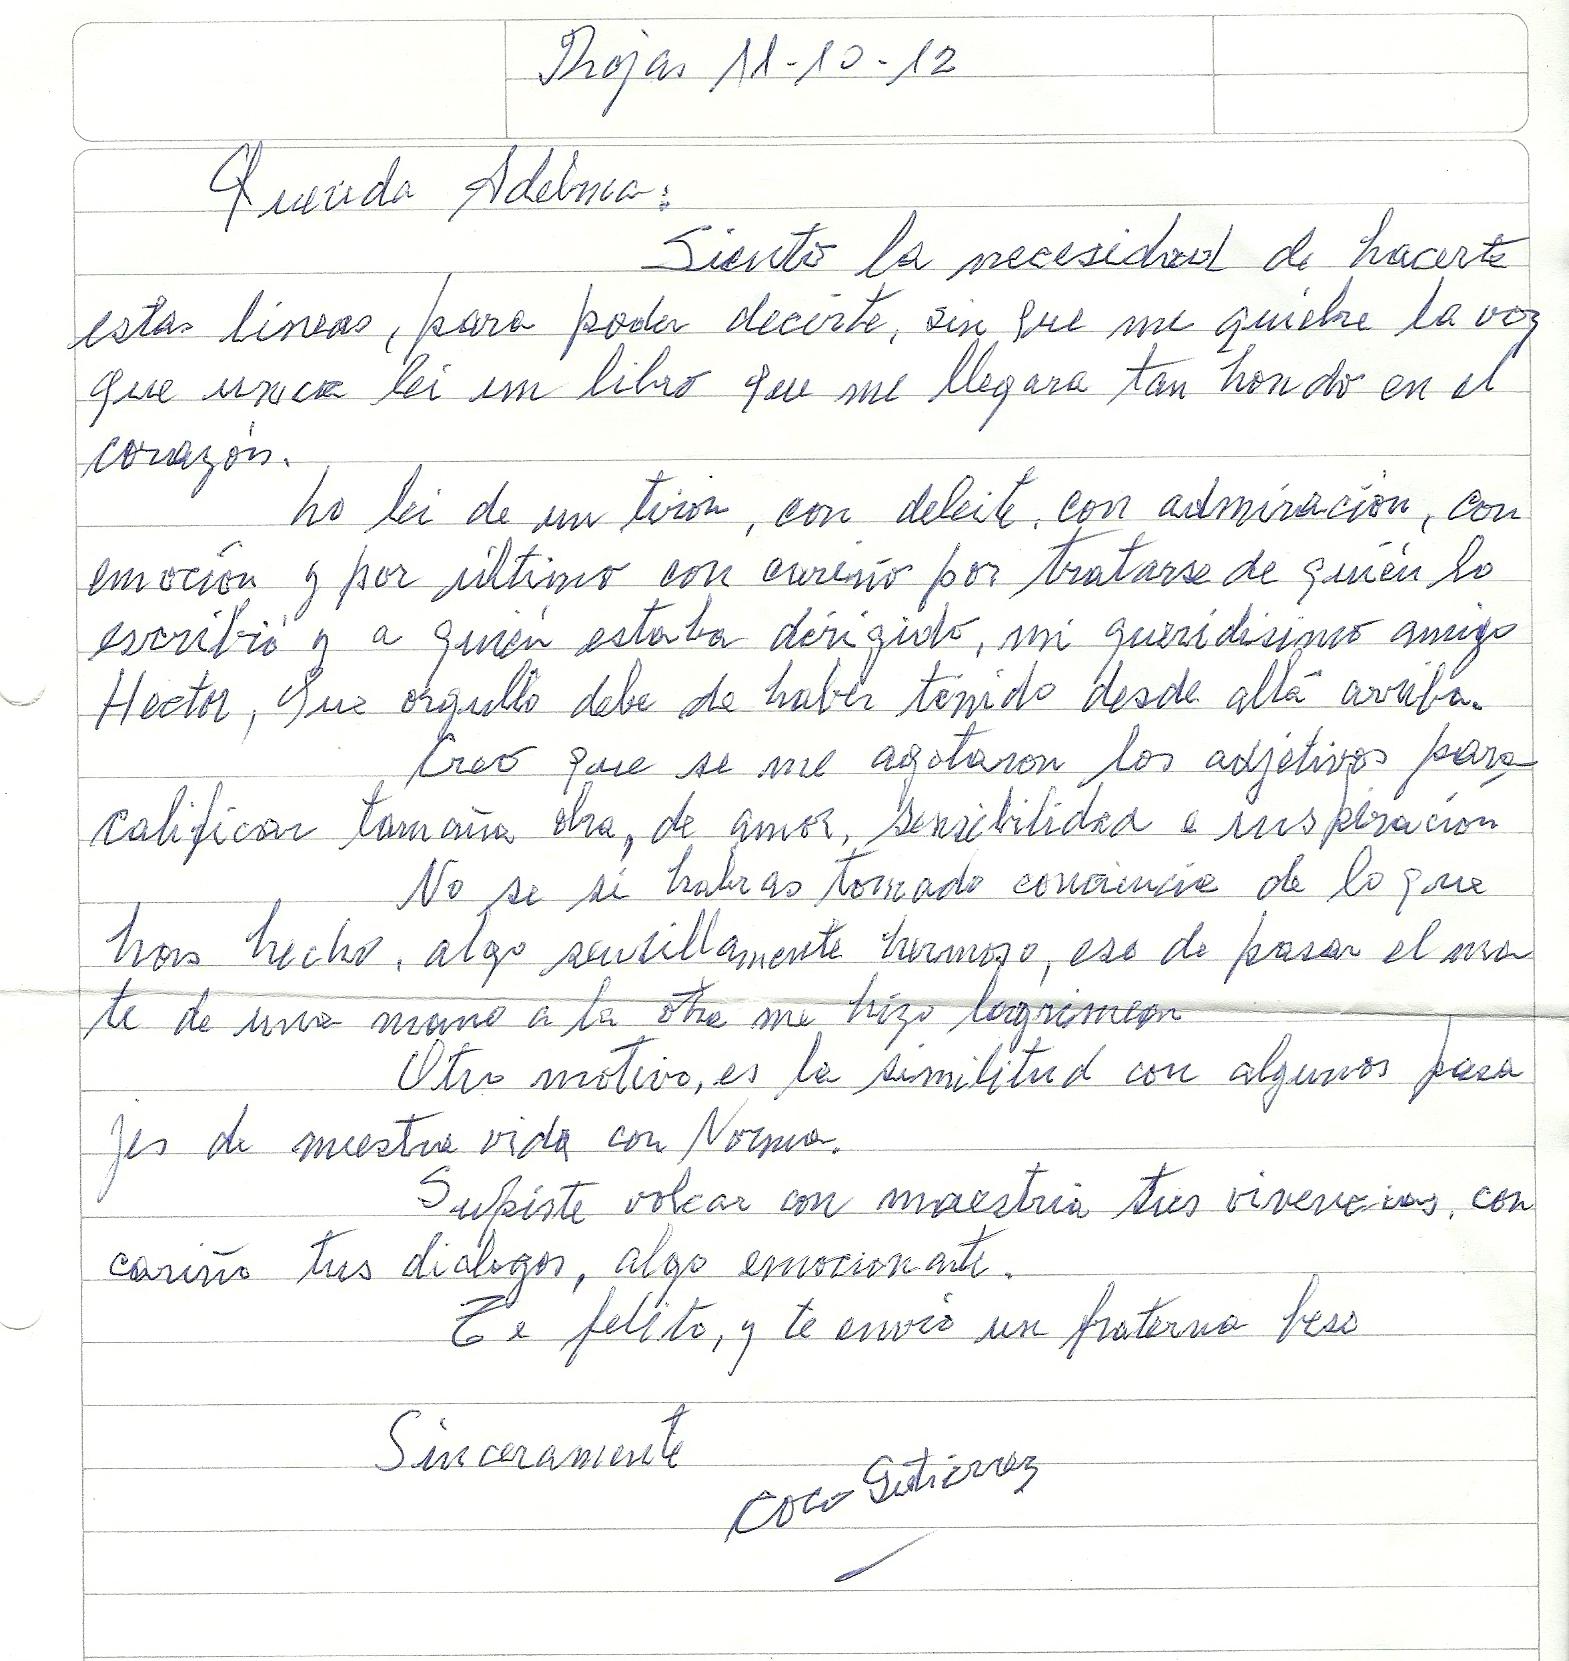 Rojas 11-10-12
Querida Adelma:
Siento la necesidad de hacerte
estas lineas, para poder decirte, sin que me quiebre la voz
que nunca lei un libro que me llegara tan hondo en el
corazón.
Lo lei de un tirón, con deleite, con admiración, con
emoción y por último con cariño por tratarse de quién lo
escribió y a quién estaba dirigido, mi queridisimo amigo
Hector, que orgullo debe de haber tenido desde allá arriba.
Creo que se me agotaron los adjetivos para
calificar tamaña obra, de amor, sensibilidad e inspiración
No se si habras tomado conciencia de lo que
has hecho, algo sensillamente hermoso, eso de pasar el ma
te de una mano a la otra me hizo lagrimear
Otro motivo, es la similitud con algunos pasa
jes de nuestra vida con Norma.
Supiste volcar con maestria tus vivencias, con
cariño tus dialogos, algo emocionante.
Te felito, y te envio un fraterna beso
Sinceramente
Coco Gutierrez